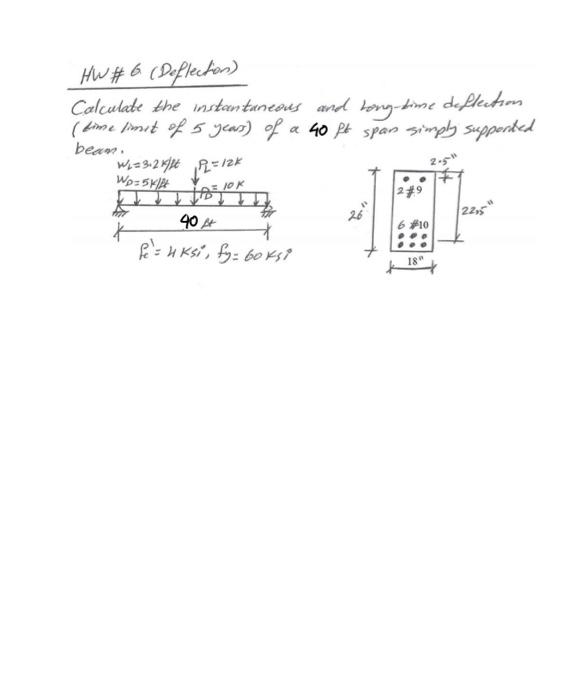 HW # 6 (Deflection)
Calculate the instantaneous and long-time deflection
(time limit of 5 years) of a 40 ft span simply supported
beam.
WL=3.2k/ft PL=12K
WD=5k/ft PD=10K
40 ft
fc'=4 Ksi, fy=60 Ksi
2.5"
2 #9
26"
22.5"
6 #10
18"